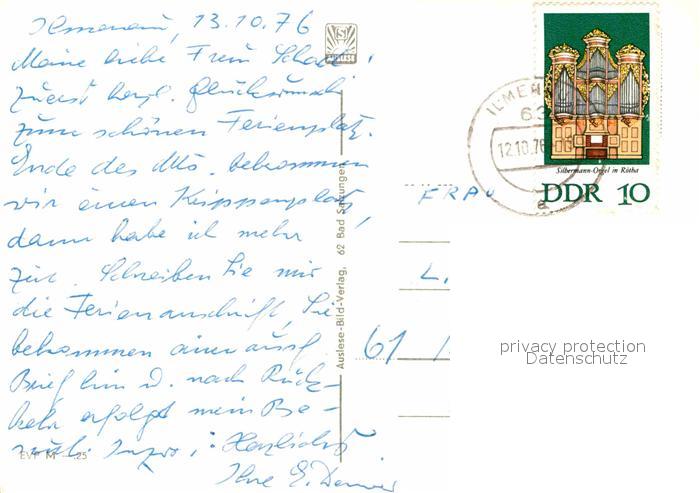 Ilmenau, 13.10.76
Meine liebe Frau
zuerst herzl. Glückwunsch
zum schönen Ferienplatz.
Ende des Mts. bekommen
wir einen Krippenplatz,
dann habe ich mehr
Zeit. Schreiben Sie mir
die Ferienanschrift, Sie
bekommen einen ausf.
Brief hin u. nach Rück-
kehr erfolgt mein Be-
such. Inzw. Herzlichst
Ihre E.
EVP M -.25
Auslese-Bild-Verlag, 62 Bad Salzungen
AUSLESE
ILMENAU
63
12.10.76
a
Silbermann-Orgel in Rötha
DDR 10
FRAU
L.
61
privacy protection
Datenschutz